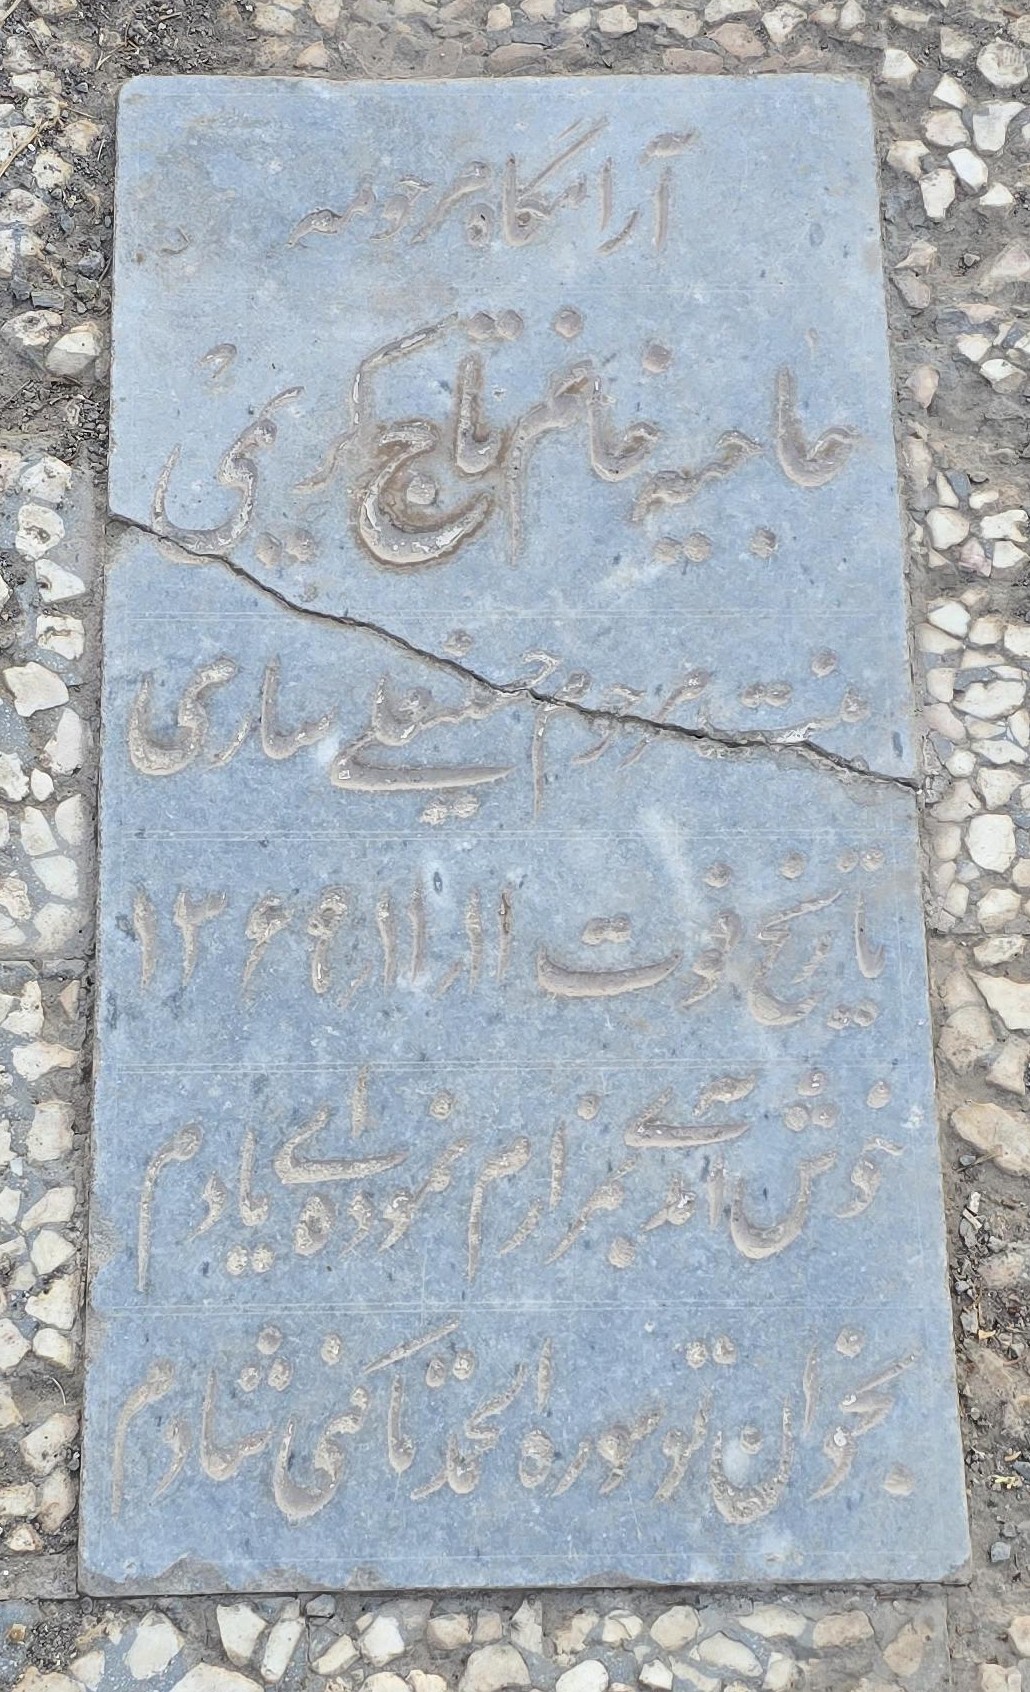 آرامگاه مرحومه
حاجیه خانم تاج کریمی
مرحوم ساری
تاریخ فوت ۱۱ر۱۱ر۱۳۶۹
خوش آمدی بمزارم نموده ای یادم
بخوان تو سوره الحمد تا کنی شادم